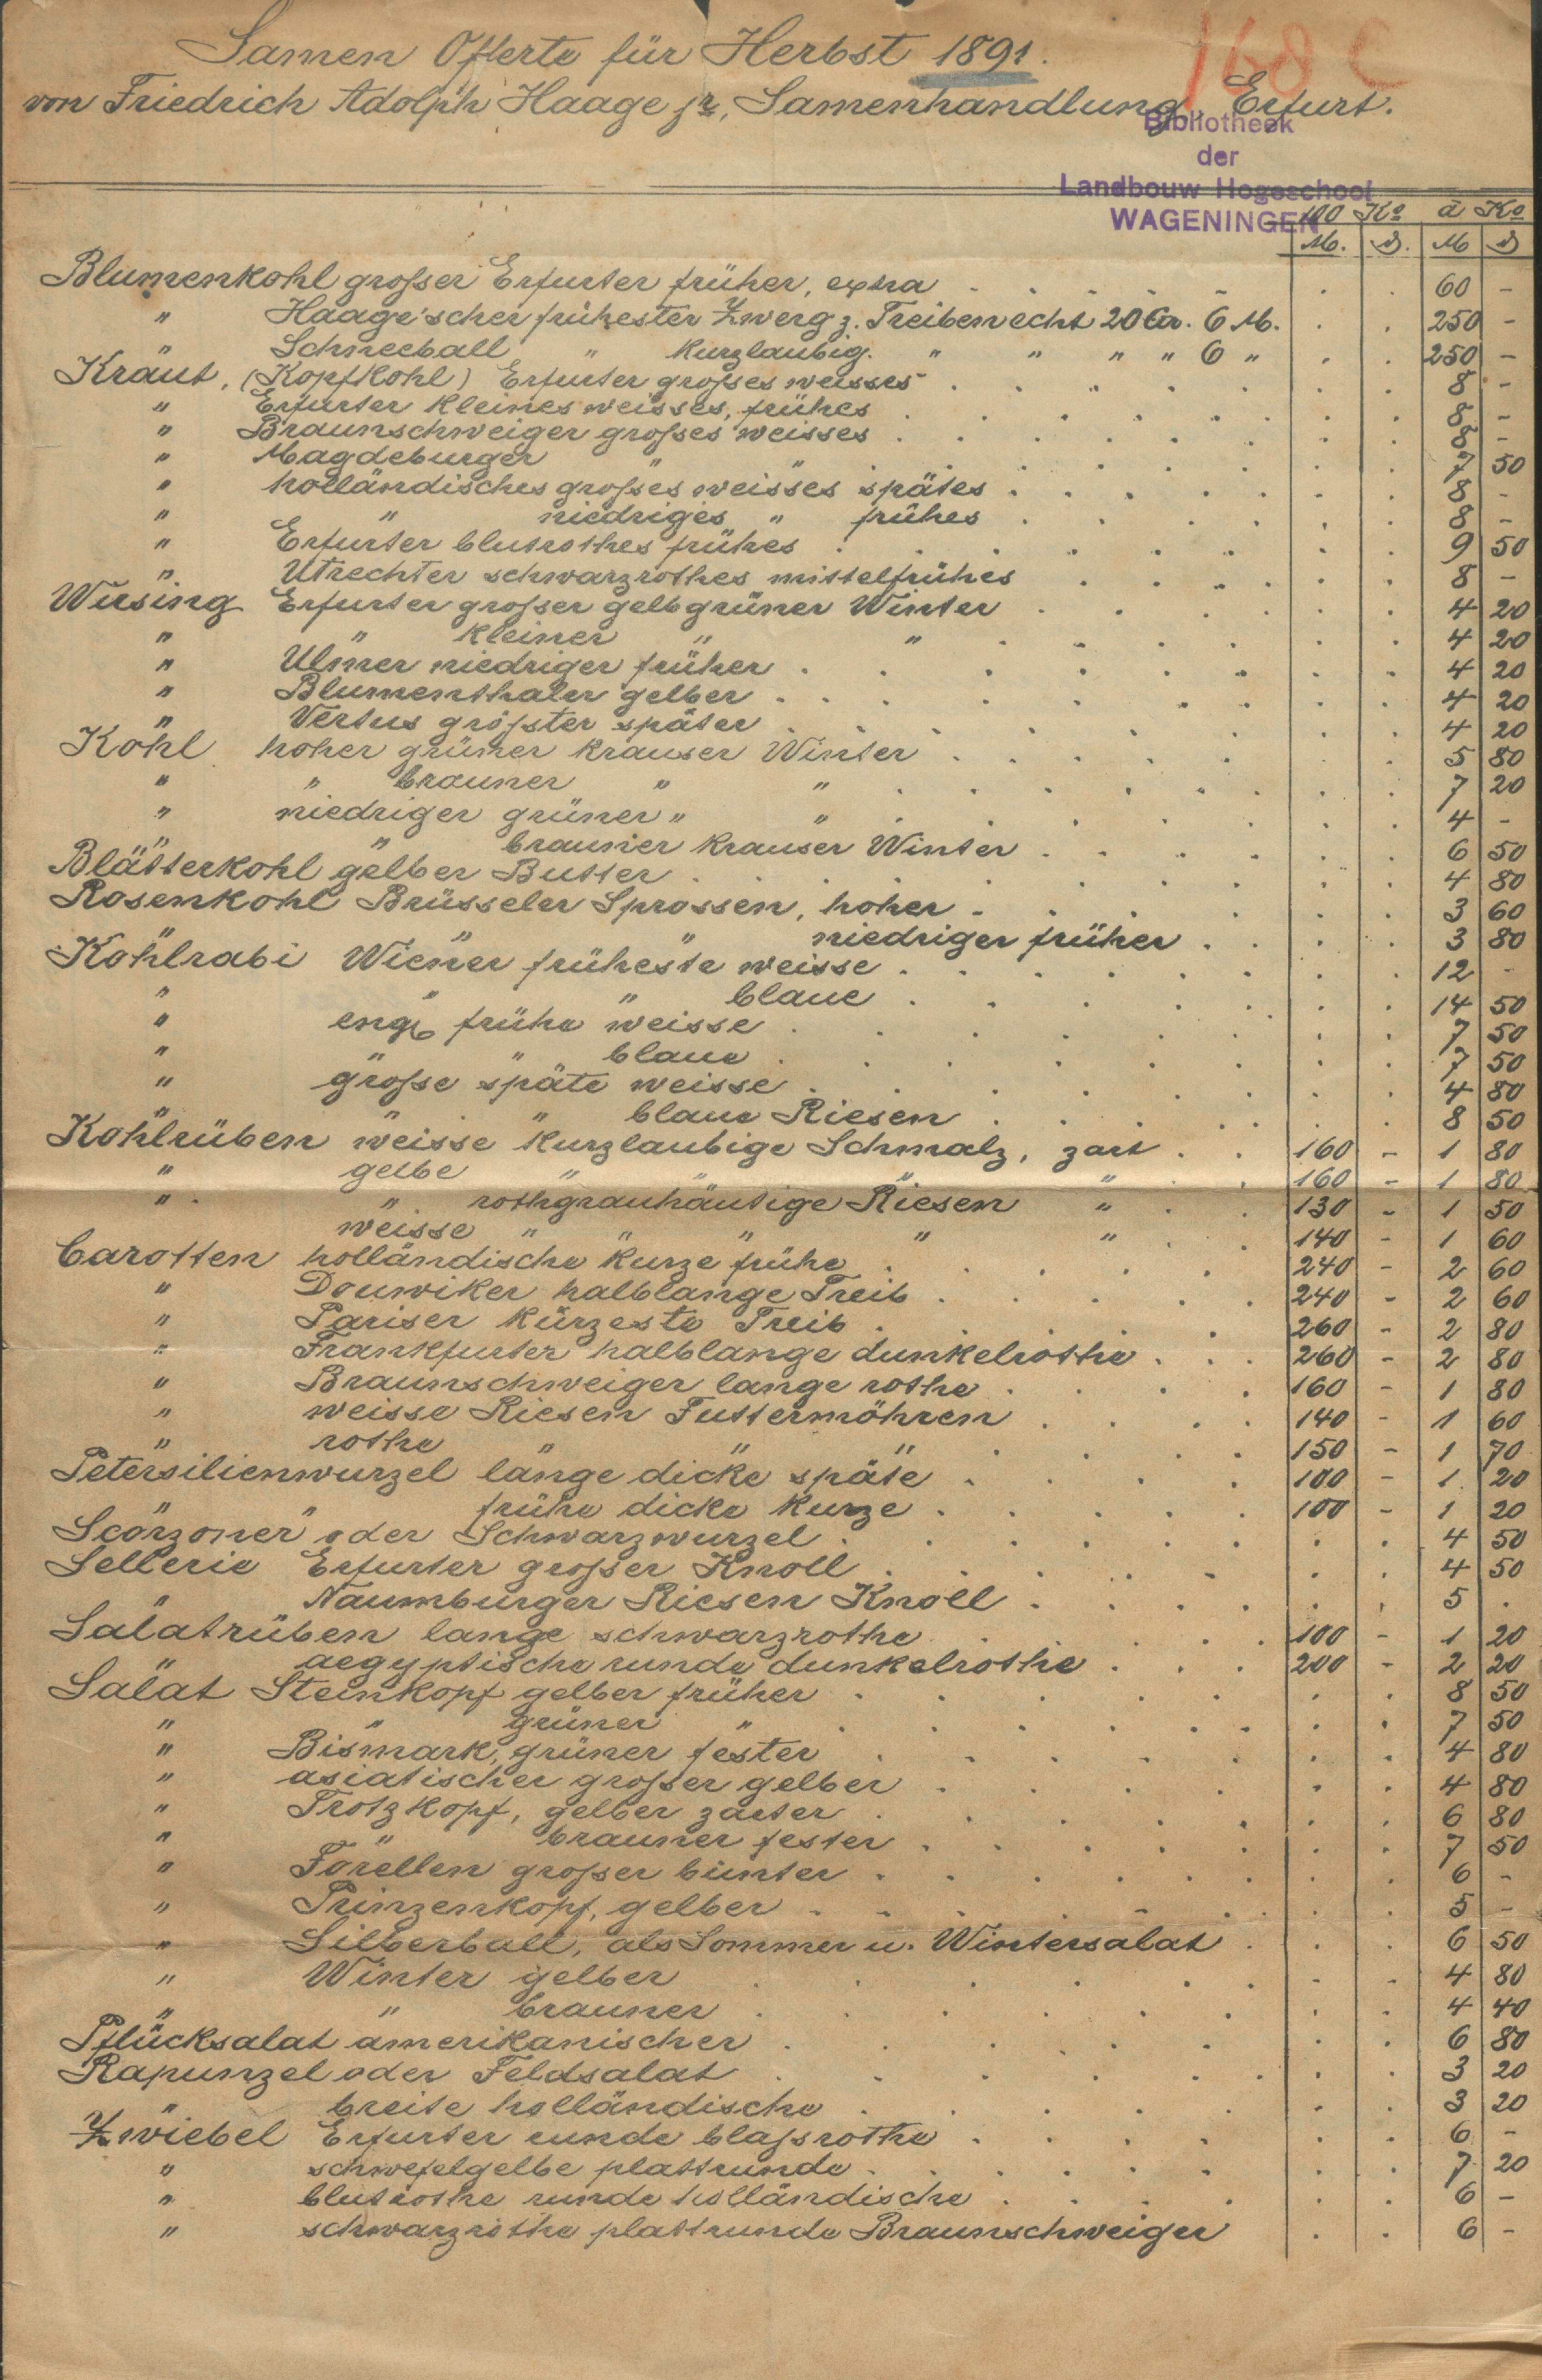 168 C
Samen Offerte für Herbst 1891.
von Friedrich Adolph Haage jr., Samenhandlung, Erfurt.
Bibliotheek
der
Landbouw Hogeschool
WAGENINGEN
100 Ko à Ko
M. ₰. M ₰
Blumenkohl großer Erfurter früher, extra . . . . . . . 60 -
" Haage'scher frühester Zwerg z. Treiben echt 20 Gr. 6 M. . . 250 -
" Schneeball " kurzlaubig. " " " " 6 " . . 250 -
Kraut, (Kopfkohl) Erfurter großes weisses . . . . . . 8 -
" Erfurter kleines weisses, frühes . . . . . . 8 -
" Braunschweiger großes weisses . . . . . . 8 -
" Magdeburger " " . . . . . . 7 50
" holländisches großes weisses spätes . . . . . . 8 -
" " niedriges " frühes . . . . . . 8 -
" Erfurter blutrothes frühes . . . . . . 9 50
" Utrechter schwarzrothes mittelfrühes . . . . . . 8 -
Wirsing Erfurter großer gelbgrüner Winter . . . . . . 4 20
" " kleiner " " . . . . . . 4 20
" Ulmer niedriger früher . . . . . . 4 20
" Blumenthaler gelber . . . . . . 4 20
" Vertus größter später . . . . . . 4 20
Kohl hoher grüner krauser Winter . . . . . . 5 80
" " brauner " " . . . . . . 7 20
" niedriger grüner " " . . . . . . 4 -
" " brauner krauser Winter . . . . . . 6 50
Blätterkohl gelber Butter . . . . . . 4 80
Rosenkohl Brüsseler Sprossen, hoher . . . . . . 3 60
" " " niedriger früher . . . . 3 80
Kohlrabi Wiener früheste weisse . . . . . . 12 -
" " " blaue . . . . . . 14 50
" engl. frühe weisse . . . . . . 7 50
" " " blaue . . . . . . 7 50
" große späte weisse . . . . . . 4 80
" " " blaue Riesen . . . . . . 8 50
Kohlrüben weisse kurzlaubige Schmalz, zart . . 160 - 1 80
" gelbe " " " . . 160 - 1 80
" " rothgrauhäutige Riesen " . . 130 - 1 50
weisse " " " " " . . 140 - 1 60
Carotten holländische kurze frühe . . . . . 240 - 2 60
" Douwiker halblange Treib . . . . . 240 - 2 60
" Pariser kürzeste Treib . . . . . 260 - 2 80
" Frankfurter halblange dunkelrothe . . . 260 - 2 80
" Braunschweiger lange rothe . . . . 160 - 1 80
" weisse Riesen Futtermöhren . . . . 140 - 1 60
" rothe " " " . . . . 150 - 1 70
Petersilienwurzel lange dicke späte . . . . . 100 - 1 20
" " frühe dicke kurze . . . . . 100 - 1 20
Scorzoner oder Schwarzwurzel . . . . . . 4 50
Sellerie Erfurter großer Knoll . . . . . . 4 50
" Naumburger Riesen Knoll . . . . . . 5 .
Salatrüben lange schwarzrothe . . . . . 100 - 1 20
" aegyptische runde dunkelrothe . . . 200 - 2 20
Salat Steinkopf gelber früher . . . . . . 8 50
" " grüner " . . . . . . 7 50
" Bismark, grüner fester . . . . . . 4 80
" asiatischer großer gelber . . . . . . 4 80
" Trotzkopf, gelber zarter . . . . . . 6 80
" " brauner fester . . . . . . 7 50
" Forellen großer bunter . . . . . . 6 -
" Prinzenkopf, gelber . . . . . . 5 -
" Silberball, als Sommer u. Wintersalat . . . 6 50
" Winter gelber . . . . . . 4 80
" " brauner . . . . . . 4 40
Pflücksalat amerikanischer . . . . . . 6 80
Rapunzel oder Feldsalat . . . . . . 3 20
" breite holländische . . . . . . 3 20
Zwiebel Erfurter runde blaßrothe . . . . . . 6 -
" schwefelgelbe plattrunde . . . . . . 7 20
" blutrothe runde holländische . . . . . . 6 -
" schwarzrothe plattrunde Braunschweiger . . 6 -